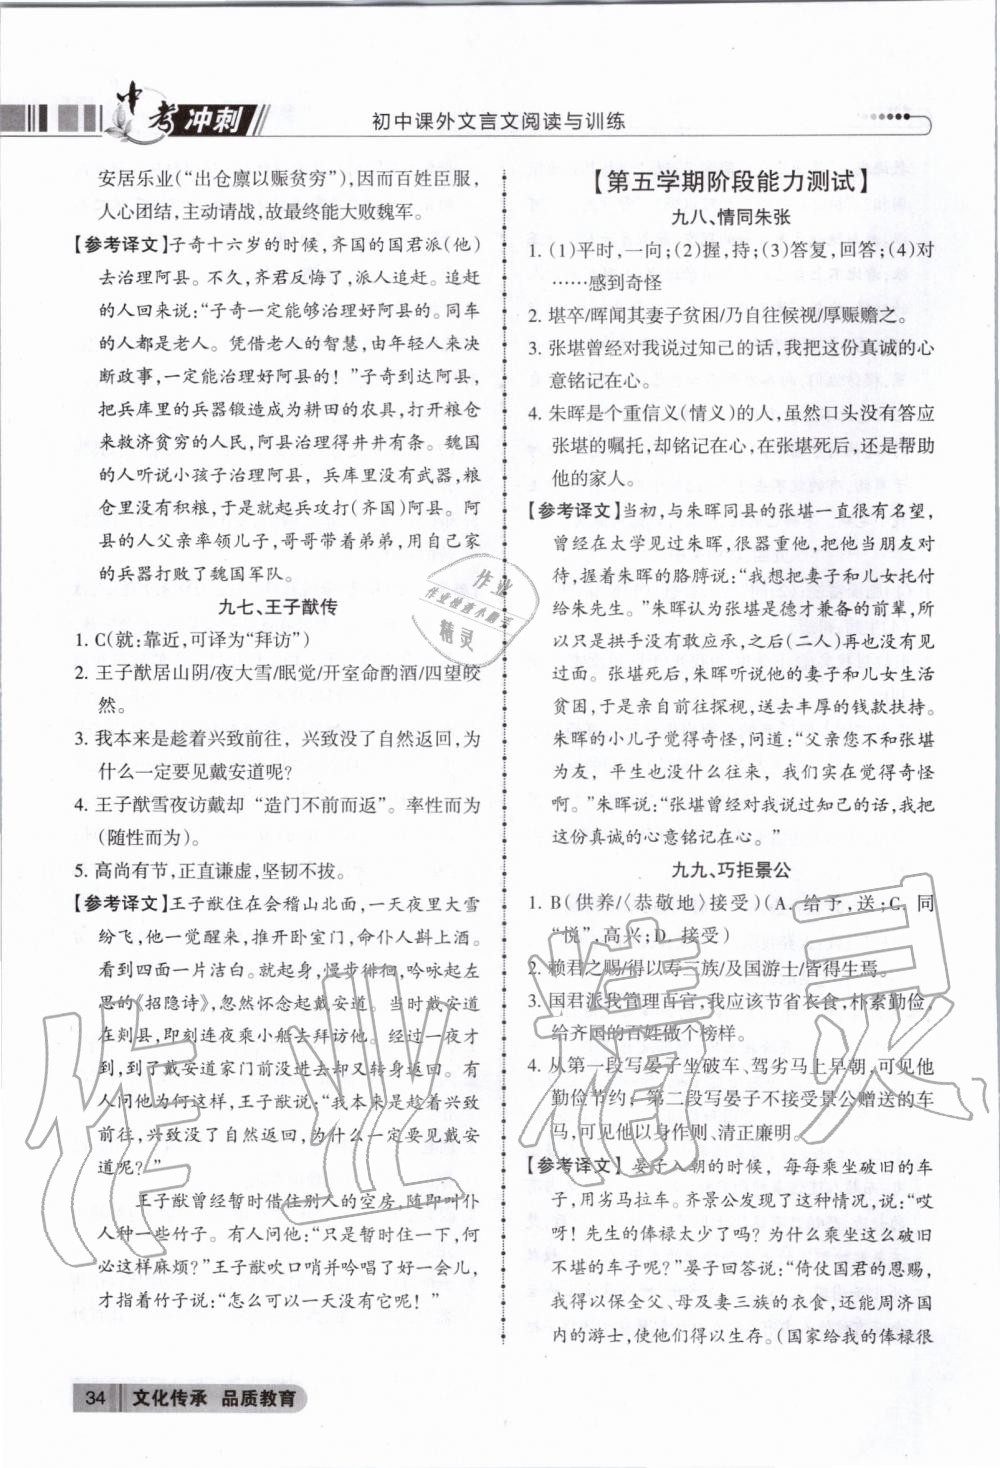 中考冲刺
初中课外文言文阅读与训练
安居乐业(“出仓廪以赈贫穷”),因而百姓臣服,
人心团结,主动请战,故最终能大败魏军。
【参考译文】子奇十六岁的时候,齐国的国君派(他)
去治理阿县。不久,齐君反悔了,派人追赶。追赶
的人回来说:“子奇一定能够治理好阿县的。同车
的人都是老人。凭借老人的智慧,由年轻人来决
断政事,一定能治理好阿县的!”子奇到达阿县,
把兵库里的兵器锻造成为耕田的农具,打开粮仓
来救济贫穷的人民,阿县治理得井井有条。魏国
的人听说小孩子治理阿县,兵库里没有武器,粮
仓里没有积粮,于是就起兵攻打(齐国)阿县。阿
县的人父亲率领儿子,哥哥带着弟弟,用自己家
的兵器打败了魏国军队。
九七、王子猷传
1. C(就:靠近,可译为“拜访”)
2. 王子猷居山阴/夜大雪/眠觉/开室命酌酒/四望皎
然。
3. 我本来是趁着兴致前往,兴致没了自然返回,为
什么一定要见戴安道呢?
4. 王子猷雪夜访戴却“造门不前而返”。率性而为
(随性而为)。
5. 高尚有节,正直谦虚,坚韧不拔。
【参考译文】王子猷住在会稽山北面,一天夜里大雪
纷飞,他一觉醒来,推开卧室门,命仆人斟上酒。
看到四面一片洁白。就起身,慢步徘徊,吟咏起左
思的《招隐诗》,忽然怀念起戴安道。当时戴安道
在剡县,即刻连夜乘小船去拜访他。经过一夜才
到,到了戴安道家门前没进去却又转身返回。有
人问他为何这样,王子猷说:“我本来是趁着兴致
前往,兴致没了自然返回,为什么一定要见戴安
道呢?”
王子猷曾经暂时借住别人的空房,随即叫仆
人种一些竹子。有人问他:“只是暂时住一下,何
必这样麻烦?”王子猷吹口哨并吟唱了好一会儿,
才指着竹子说:“怎么可以一天没有它呢!”
【第五学期阶段能力测试】
九八、情同朱张
1. (1)平时,一向;(2)握,持;(3)答复,回答;(4)对
……感到奇怪
2. 堪卒/晖闻其妻子贫困/乃自往候视/厚赈赡之。
3. 张堪曾经对我说过知己的话,我把这份真诚的心
意铭记在心。
4. 朱晖是个重信义(情义)的人,虽然口头没有答应
张堪的嘱托,却铭记在心,在张堪死后,还是帮助
他的家人。
【参考译文】当初,与朱晖同县的张堪一直很有名望,
曾经在太学见过朱晖,很器重他,把他当朋友对
待,握着朱晖的胳膊说:“我想把妻子和儿女托付
给朱先生。”朱晖认为张堪是德才兼备的前辈,所
以只是拱手没有敢应承,之后(二人)再也没有见
过面。张堪死后,朱晖听说他的妻子和儿女生活
贫困,于是亲自前往探视,送去丰厚的钱款扶持。
朱晖的小儿子觉得奇怪,问道:“父亲您不和张堪
为友,平生也没什么往来,我们实在觉得奇怪
啊。”朱晖说:“张堪曾经对我说过知己的话,我把
这份真诚的心意铭记在心。”
九九、巧拒景公
1. B(供养/〈恭敬地〉接受)(A. 给予,送;C. 同
“悦”,高兴;D. 接受)
2. 赖君之赐/得以寿三族/及国游士/皆得生焉。
3. 国君派我管理百官,我应该节省衣食,朴素勤俭,
给齐国的百姓做个榜样。
4. 从第一段写晏子坐破车、驾劣马上早朝,可见他
勤俭节约,第二段写晏子不接受景公赠送的车
马,可见他以身作则、清正廉明。
【参考译文】晏子入朝的时候,每每乘坐破旧的车
子,用劣马拉车。齐景公发现了这种情况,说:“哎
呀!先生的俸禄太少了吗?为什么乘坐这么破旧
不堪的车子呢?”晏子回答说:“倚仗国君的恩赐,
我得以保全父、母及妻三族的衣食,还能周济国
内的游士,使他们得以生存。(国家给我的俸禄很
34 文化传承 品质教育
作业
作业检查小助手
精灵
作业精灵